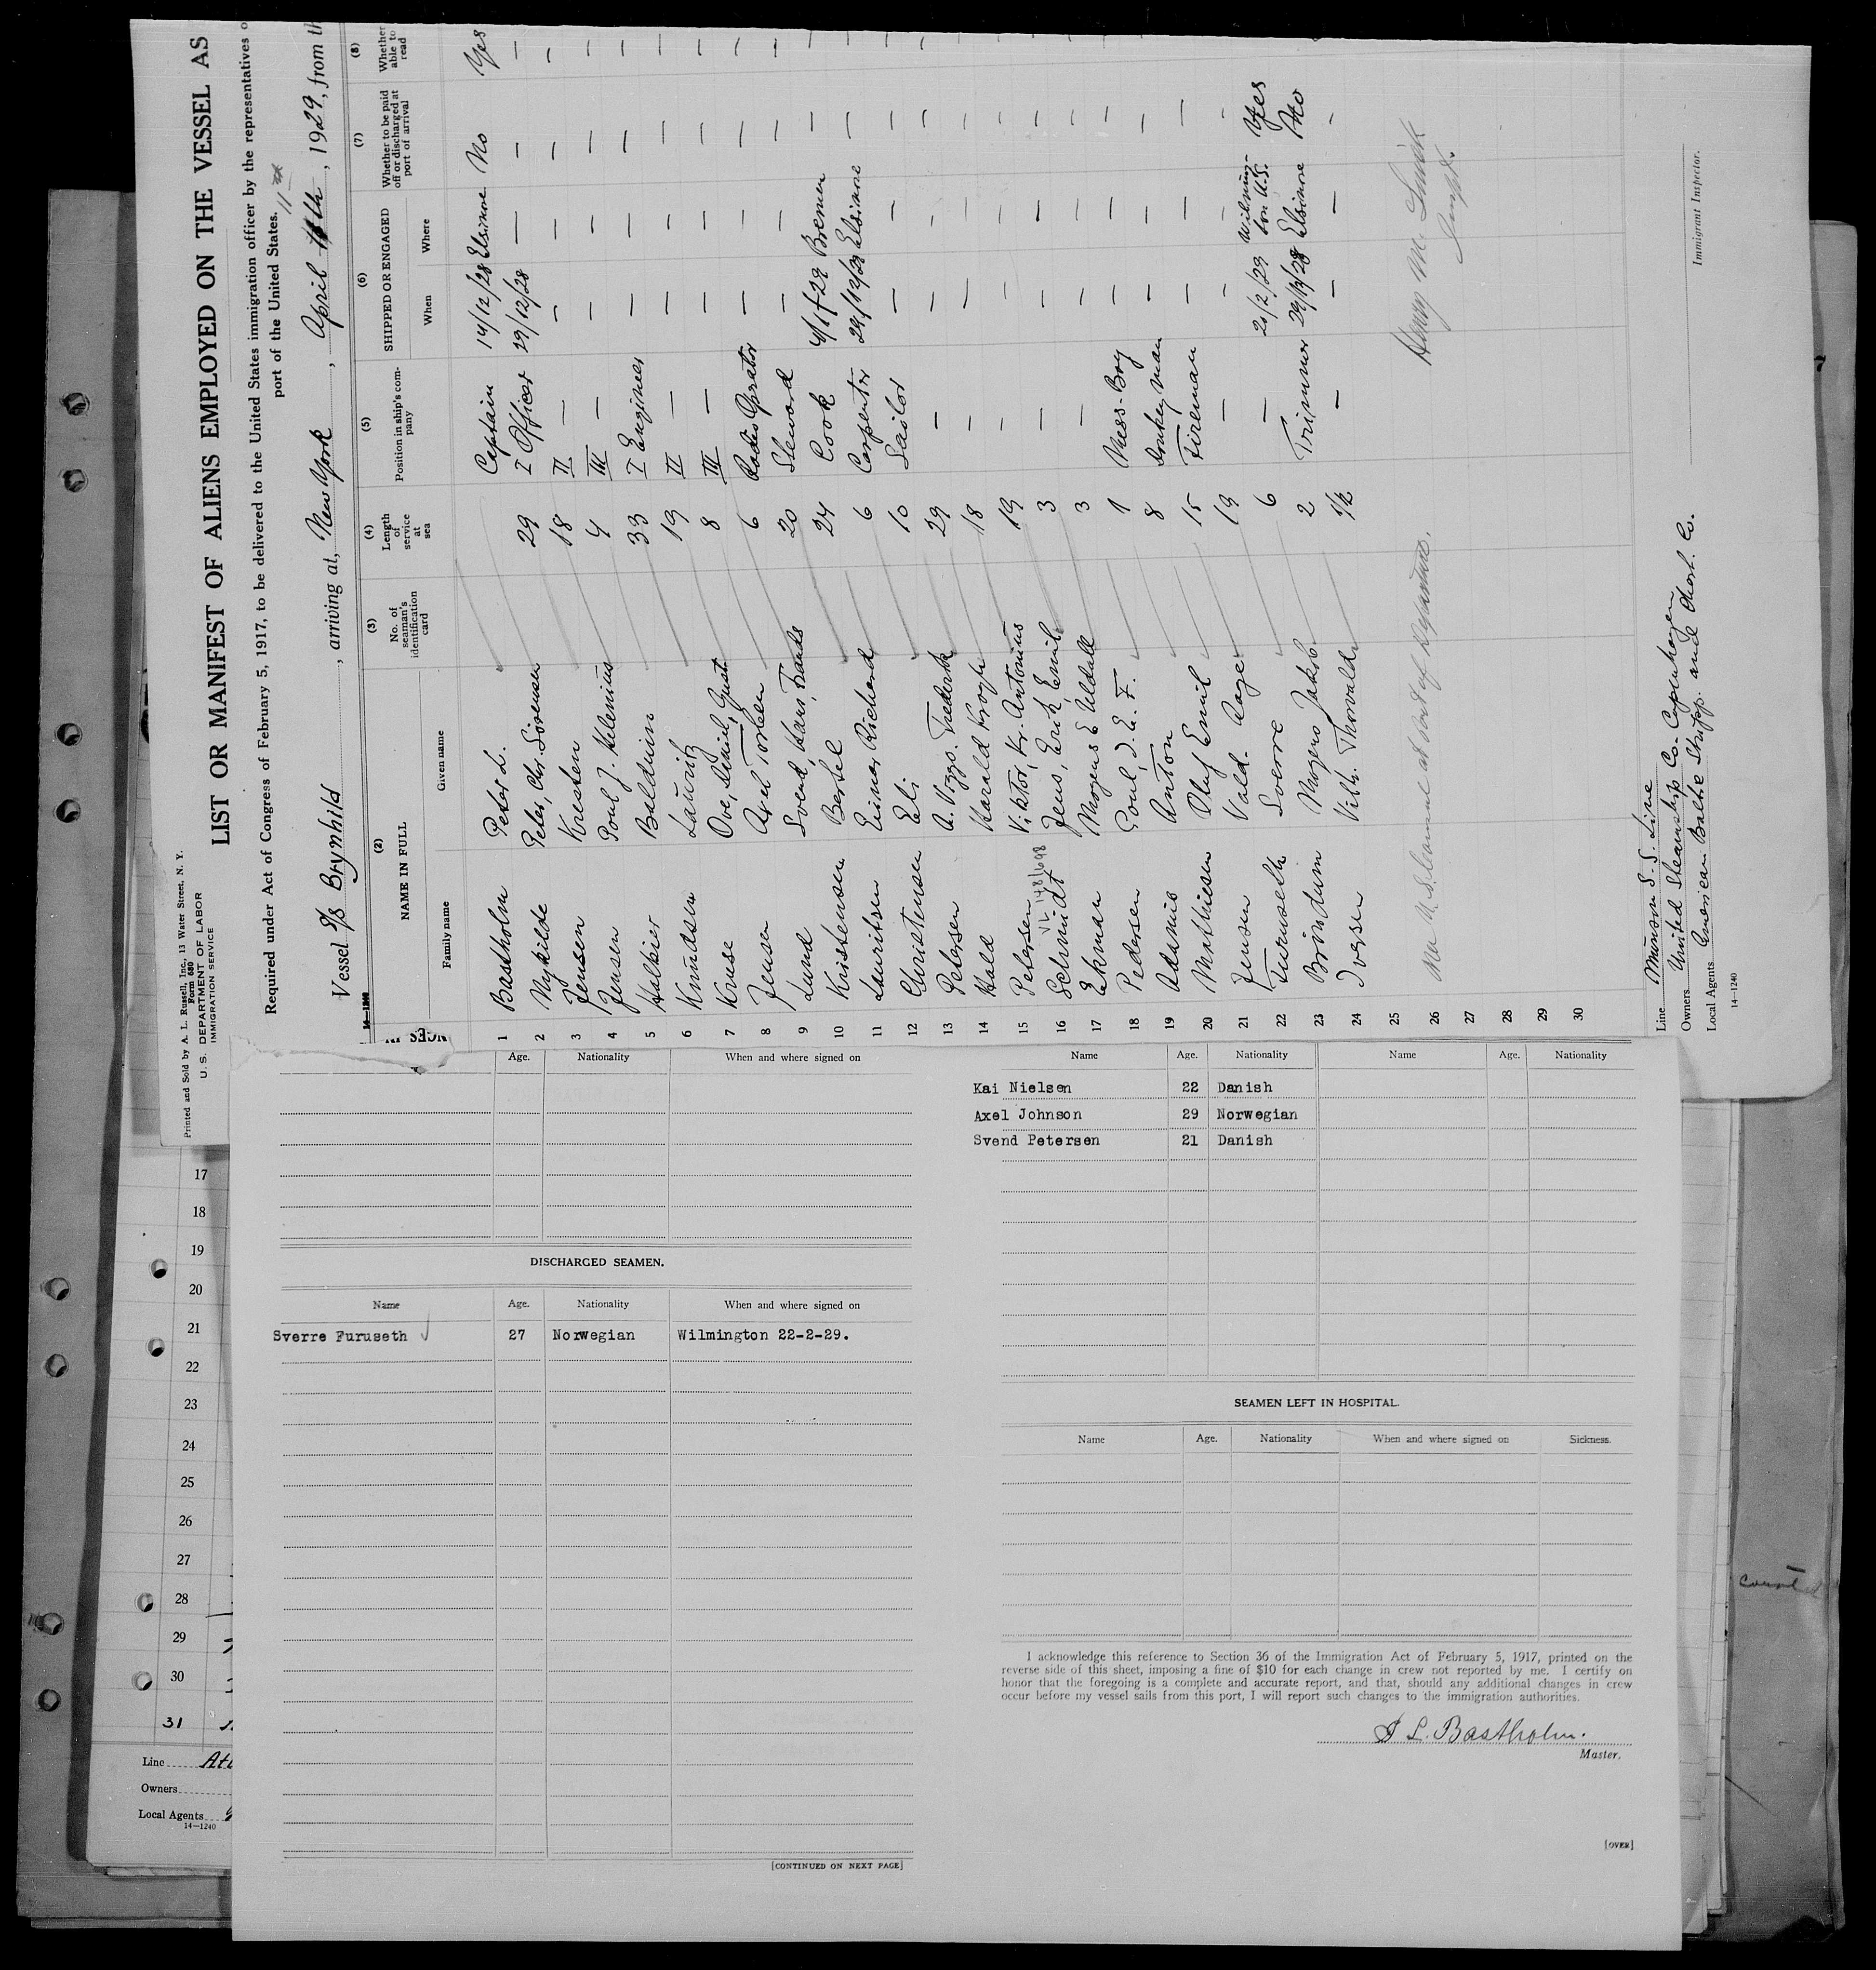 Printed and Sold by A. L. Russell, Inc., 13 Water Street, N. Y.
Form 680
U. S. DEPARTMENT OF LABOR
IMMIGRATION SERVICE
LIST OR MANIFEST OF ALIENS EMPLOYED ON THE VESSEL AS
Required under Act of Congress of February 5, 1917, to be delivered to the United States immigration officer by the representatives o
port of the United States.
Vessel S/S Brynhild, arriving at, New York, April 11th, 1929, from th
14-1240
(2) (3) (4) (5) (6) (7) (8)
NAME IN FULL No. of seaman's identification card Length of service at sea Position in ship's company SHIPPED OR ENGAGED Whether to be paid off or discharged at port of arrival Whether able to read
Family name Given name When Where
1 Bastholm Peter L. Captain 14/12/28 Elsinore No Yes
2 Nykilde Peter, Chr. Sörensen 29 I Officer 29/12/28 — — —
3 Jensen Kresten 18 II — — — — —
4 Jensen Poul J. Klenius 4 III — — — — —
5 Halkier Balduin 33 I Engineer — — — —
6 Knudsen Lauritz 19 II — — — — —
7 Kruse Ove, Gust 8 III — — — — —
8 Jensen Axel Torben 6 Radio Oprator — — — —
9 Lund Svend, Hans, Frants 20 Steward — — — —
10 Kristensen Bertel 24 Cook 4/1-29 Bremen — —
11 Lauritsen Einar Richard 6 Carpenter 29/12/28 Elsinore — —
12 Christensen Eli 10 Sailor — — — —
13 Petersen A. Viggo. Frederik 29 — — — — —
14 Hald Harald Krogh 18 — — — — —
15 Petersen Viktor, Kr. Antonius 19 — — — — —
16 Schmidt Jens, Erik, Emil 3 — — — — —
17 Ekman Mogens E Uldall 3 — — — — —
18 Pedersen Poul, J. E. F. 1 Mess-Boy — — —
19 Adamis Anton 8 Donkeyman — — —
20 Mathiesen Oluf Emil 15 Fireman — — —
21 Jensen Vald. Aage 19 — — — —
22 Furuseth Sverre 6 — 21/2/29 Wilmington U.S. Yes
23 Brindum Mogens Jakob 2 Trimmer 29/12/28 Elsinore No
24 Iversen Vilh. Thorvald 1/2 — — — —
25
26
27
28
29
30
Line Munson S. S. Line
Owners United Steamship Co. Copenhagen
Local Agents American Baltic Shipp. and Chart. Co.
14-1240
Immigrant Inspector.
Age. Nationality When and where signed on
DISCHARGED SEAMEN.
Name Age. Nationality When and where signed on
Sverre Furuseth 27 Norwegian Wilmington 22-2-29.
[CONTINUED ON NEXT PAGE]
Name Age. Nationality Name Age. Nationality
Kai Nielsen 22 Danish
Axel Johnson 29 Norwegian
Svend Petersen 21 Danish
SEAMEN LEFT IN HOSPITAL.
Name Age. Nationality When and where signed on Sickness.
I acknowledge this reference to Section 36 of the Immigration Act of February 5, 1917, printed on the
reverse side of this sheet, imposing a fine of $10 for each change in crew not reported by me. I certify on
honor that the foregoing is a complete and accurate report, and that, should any additional changes in crew
occur before my vessel sails from this port, I will report such changes to the immigration authorities.
P L. Bastholm.
Master.
[OVER]
17
18
19
20
21
22
23
24
25
26
27
28
29
30
31
Line
Owners
Local Agents
14-1240